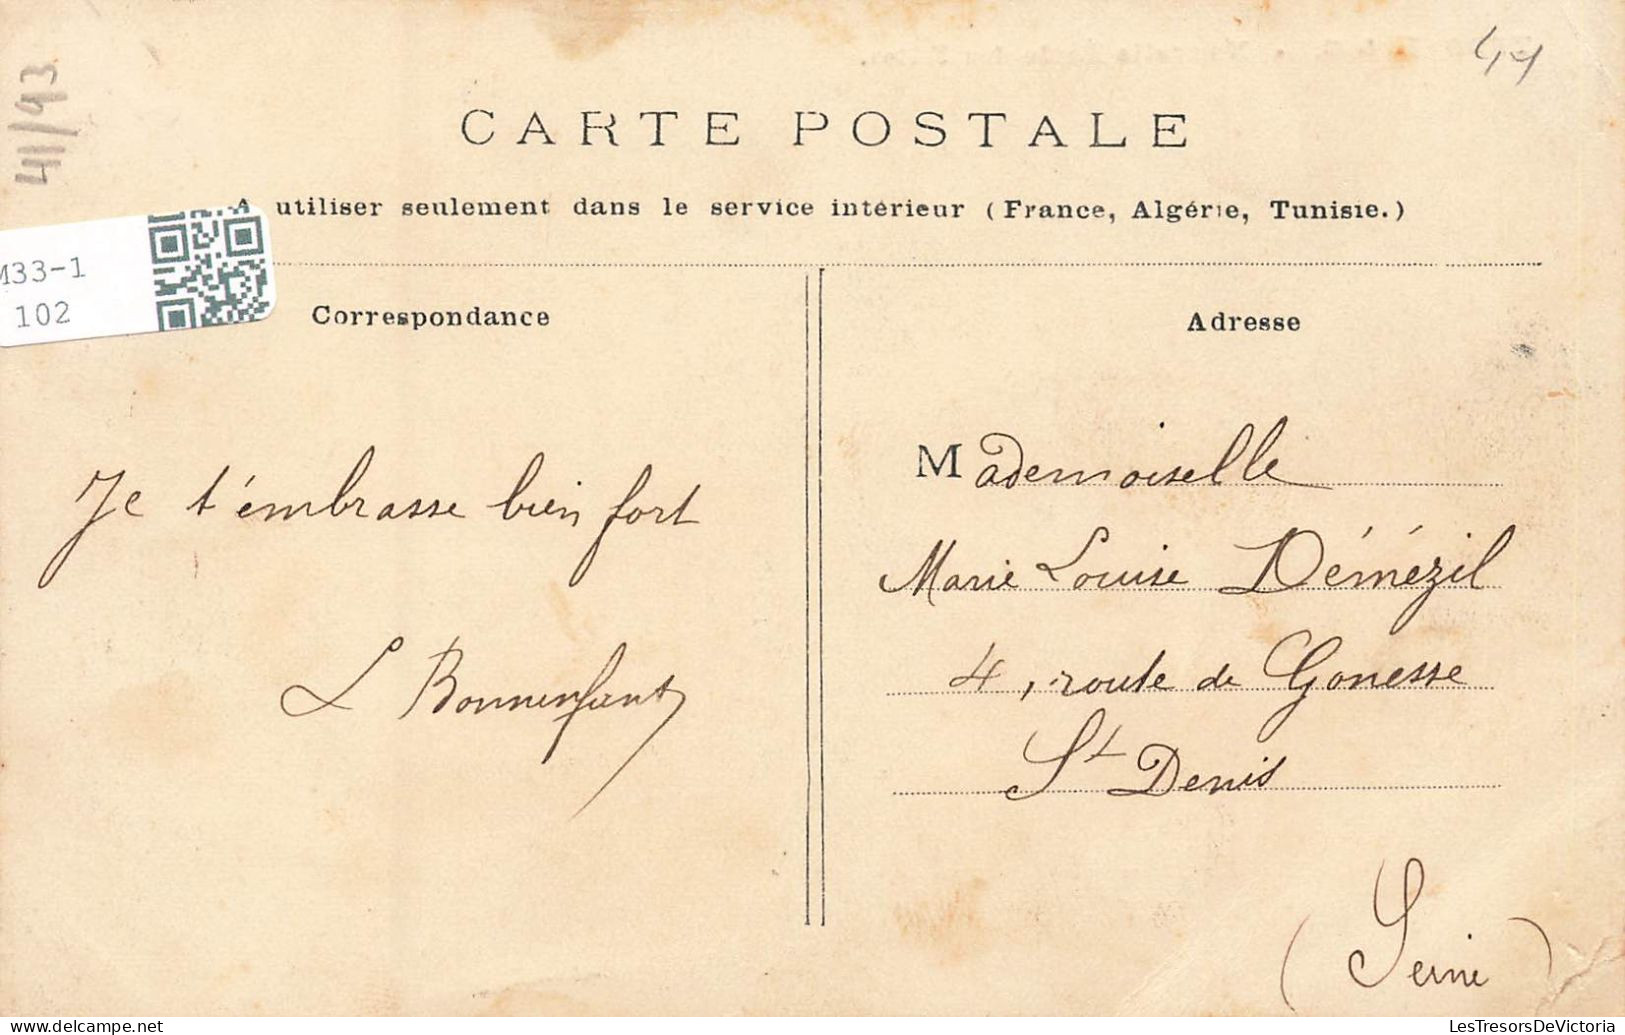 44
41/93
CARTE POSTALE
A utiliser seulement dans le service intérieur (France, Algérie, Tunisie.)
M33-1
102
Correspondance
Je t'embrasse bien fort
L Bonnenfant
Adresse
Mademoiselle
Marie Louise Démézil
4, route de Gonesse
St Denis
(Seine)
LesTresorsDeVictoria